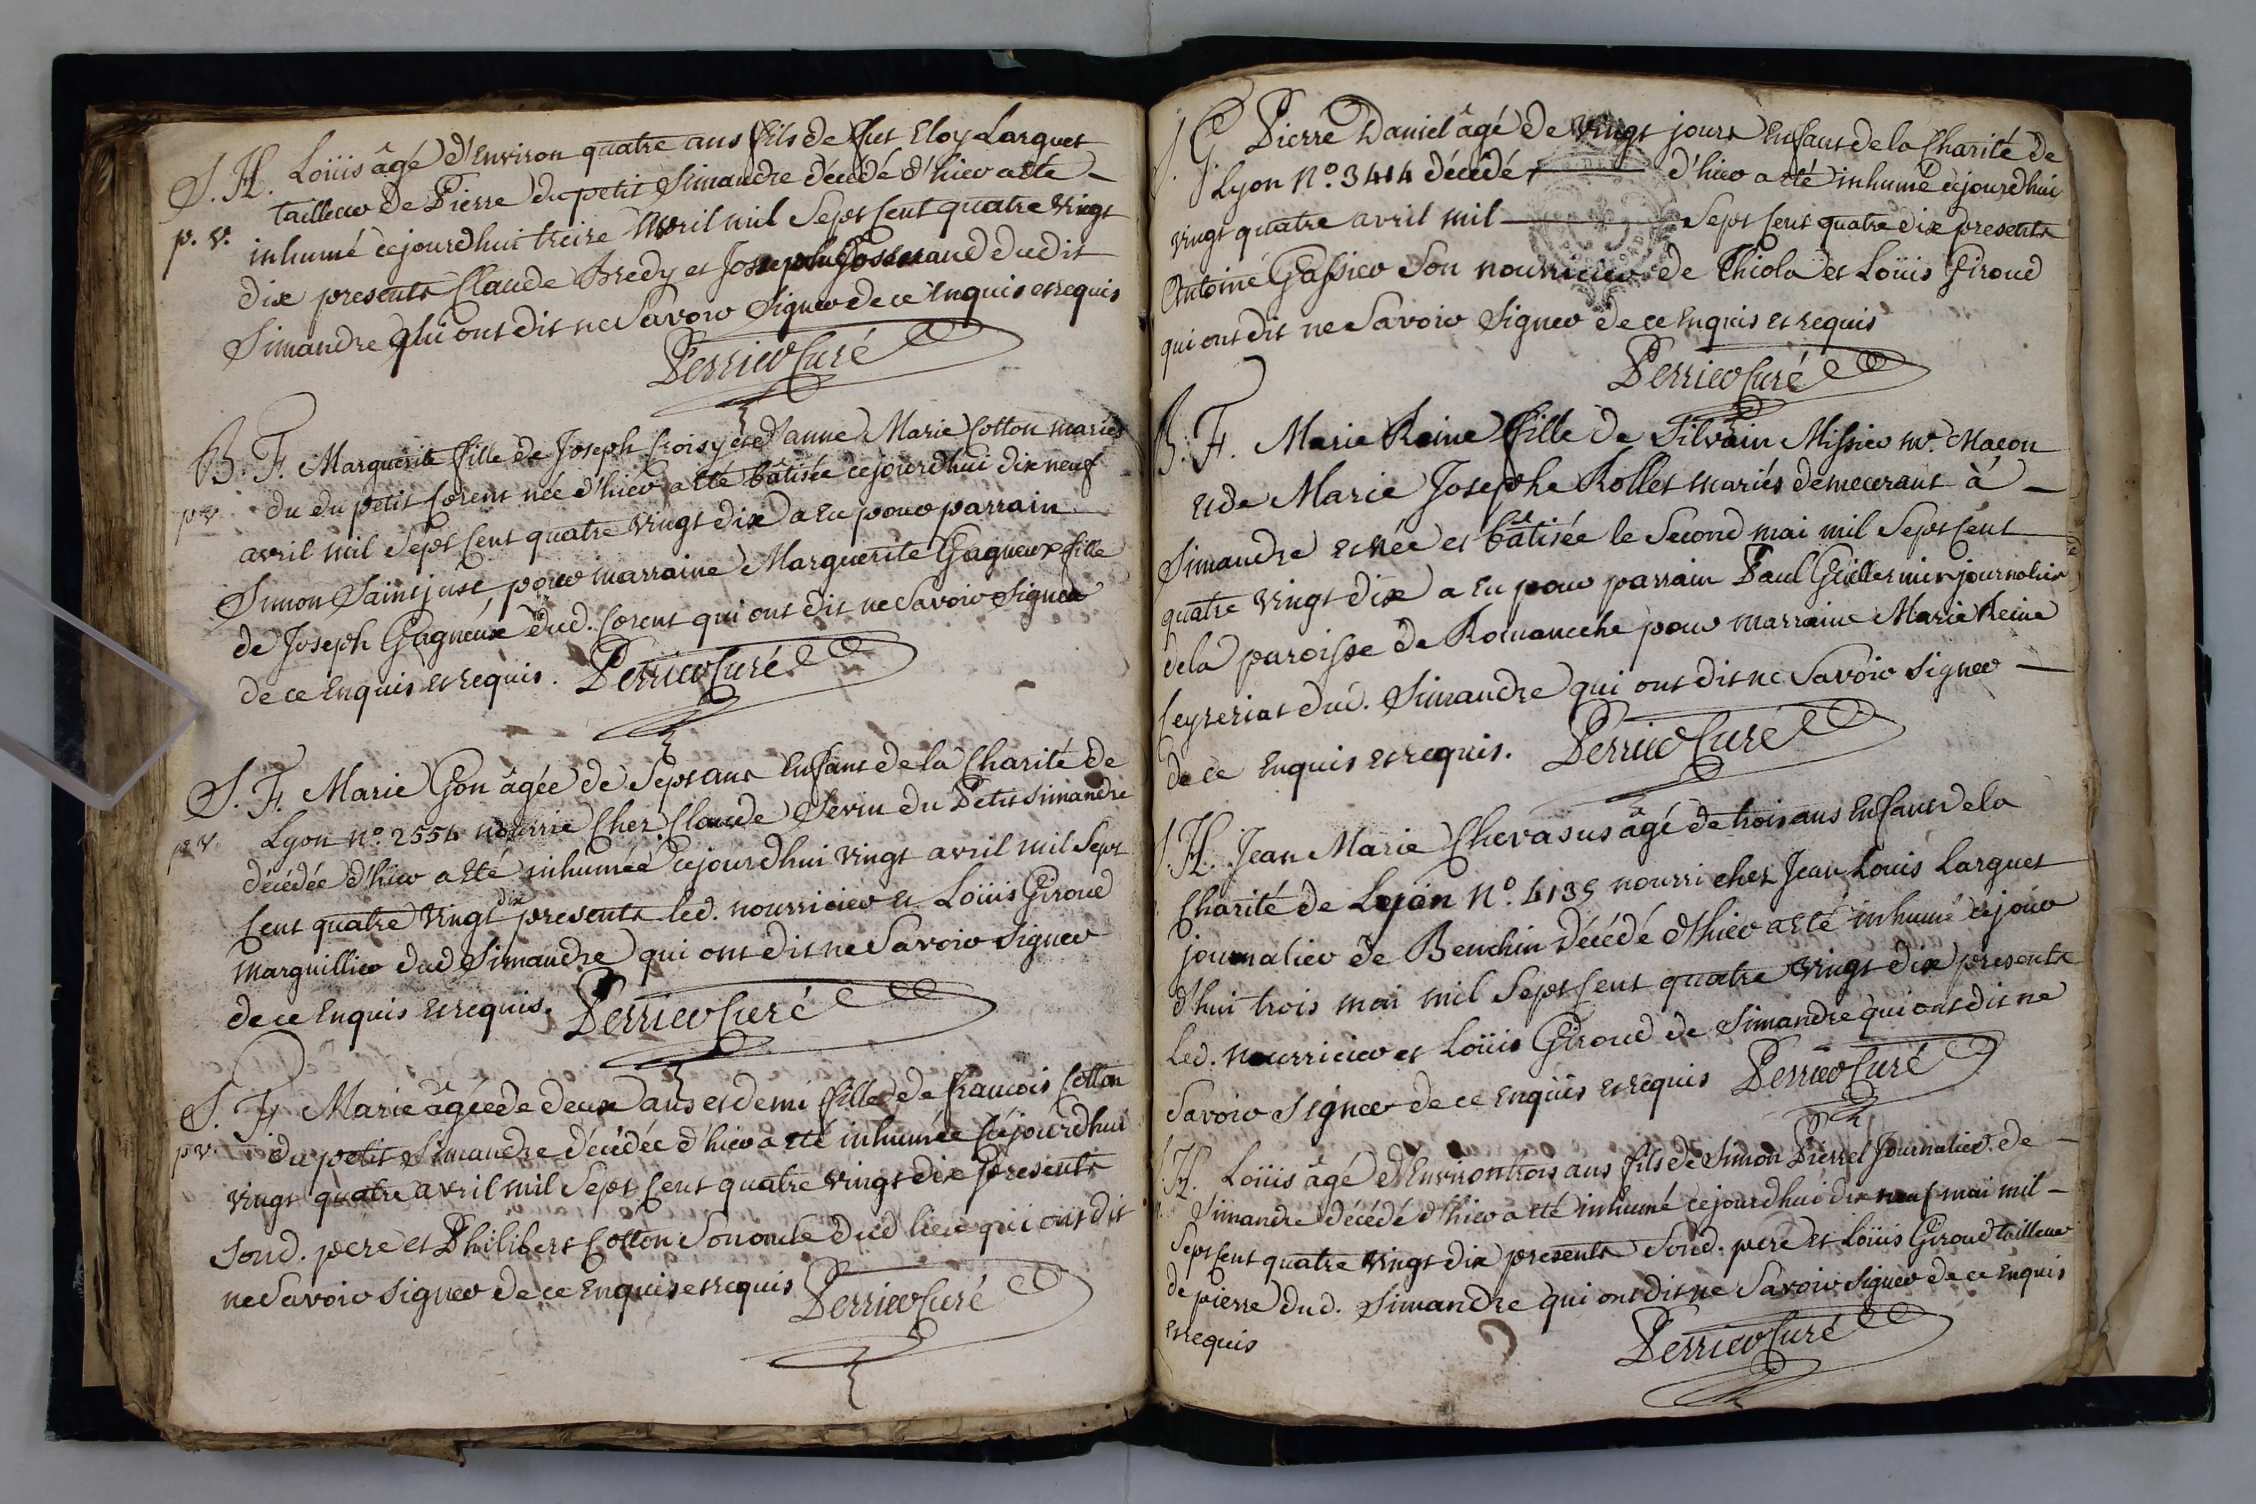 S. H. Loüis âgé d'Environ quatre ans fils de fut Eloy Larguet
p. v. tailleur de Pierre du petit Simandre décédé d'hier a eté
inhumé cejourdhui treize Avril mil Sept Cent quatre vingt
dix presents Claude Bredy et Joseph Josserand dudit
Simandre qui ont dit ne Savoir Signer de ce Enquis et requis
Perrier Curé
B. F. Marguerite fille de Joseph Croisy et d'anne Marie Cotton mariés
p v. du du petit Corent née d'hier a eté bâtisée cejourdhui dix neuf
avril mil Sept Cent quatre vingt dix a Eu pour parrain
Simon Saintjust pour marraine Marguerite Gagneux fille
de Joseph Gagneux dud. Corent qui ont dit ne Savoir Signer
de ce Enquis et requis. Perrier Curé
S. F. Marie Gon âgée de Sept ans Enfant de la Charité de
p v. Lyon N.o 2554 nourrie Chez Claude Sevin du Petit Simandre
décédée d'hier a eté inhumée cejourdhui vingt avril mil Sept
Cent quatre vingt dix presents led. nourricier et Loüis Giroud
Marguillier dud Simandre qui ont dit ne Savoir Signer
de ce Enquis et requis. Perrier Curé
S. F. Marie âgée de deux ans et demi fille de francois Cotton
p v. du petit Simandre décédée d'hier a eté inhumée Cejourdhui
vingt quatre avril mil Sept Cent quatre vingt dix presents
Sond. pere et Philibert Cotton Son oncle dud lieu qui ont dit
ne Savoir Signer de ce Enquis et requis Perrier Curé
S. G. Pierre Daniel âgé de vingt jours Enfant de la Charité de
Lyon N.o 3414 décédé d'hier a eté inhumé cejourdhui
vingt quatre avril mil Sept Cent quatre dix presents
Antoine Gassier Son nourricier de Thiola et Loüis Giroud
qui ont dit ne Savoir Signer de ce Enquis et requis
Perrier Curé
B. F. Marie Reine fille de Silvain Missier Mr. Macon
et de Marie Josephe Rollet mariés demeurant à
Simandre et née et bâtisée le Second mai mil Sept Cent
quatre vingt dix a Eu pour parrain Paul Guillermin journalier
de la paroisse de Romaneche pour marraine Marie Reine
Ceyzeriat dud. Simandre qui ont dit ne Savoir Signer
de ce Enquis et requis. Perrier Curé
S. H. Jean Marie Chevassus âgé de trois ans Enfant de la
Charité de Leyön N.o 4135 nourri chez Jean Louis Larguet
journalier de Benchin décédé d'hier a eté inhumé cejour
d'hui trois mai mil Sept Cent quatre vingt dix presents
led. nourricier et Loüis Giroud de Simandre qui ont dit ne
Savoir Signer de ce Enquis et requis Perrier Curé
S. H. Loüis âgé d'Environ trois ans fils de Simon Pierrel Journalier de
Simandre décédé d'hier a eté inhumé cejourdhui dix neuf mai mil
Sept Cent quatre vingt dix presents Sond. pere et Loüis Giroud tailleur
de pierre dud. Simandre qui ont dit ne Savoir Signer de ce Enquis
et requis
Perrier Curé